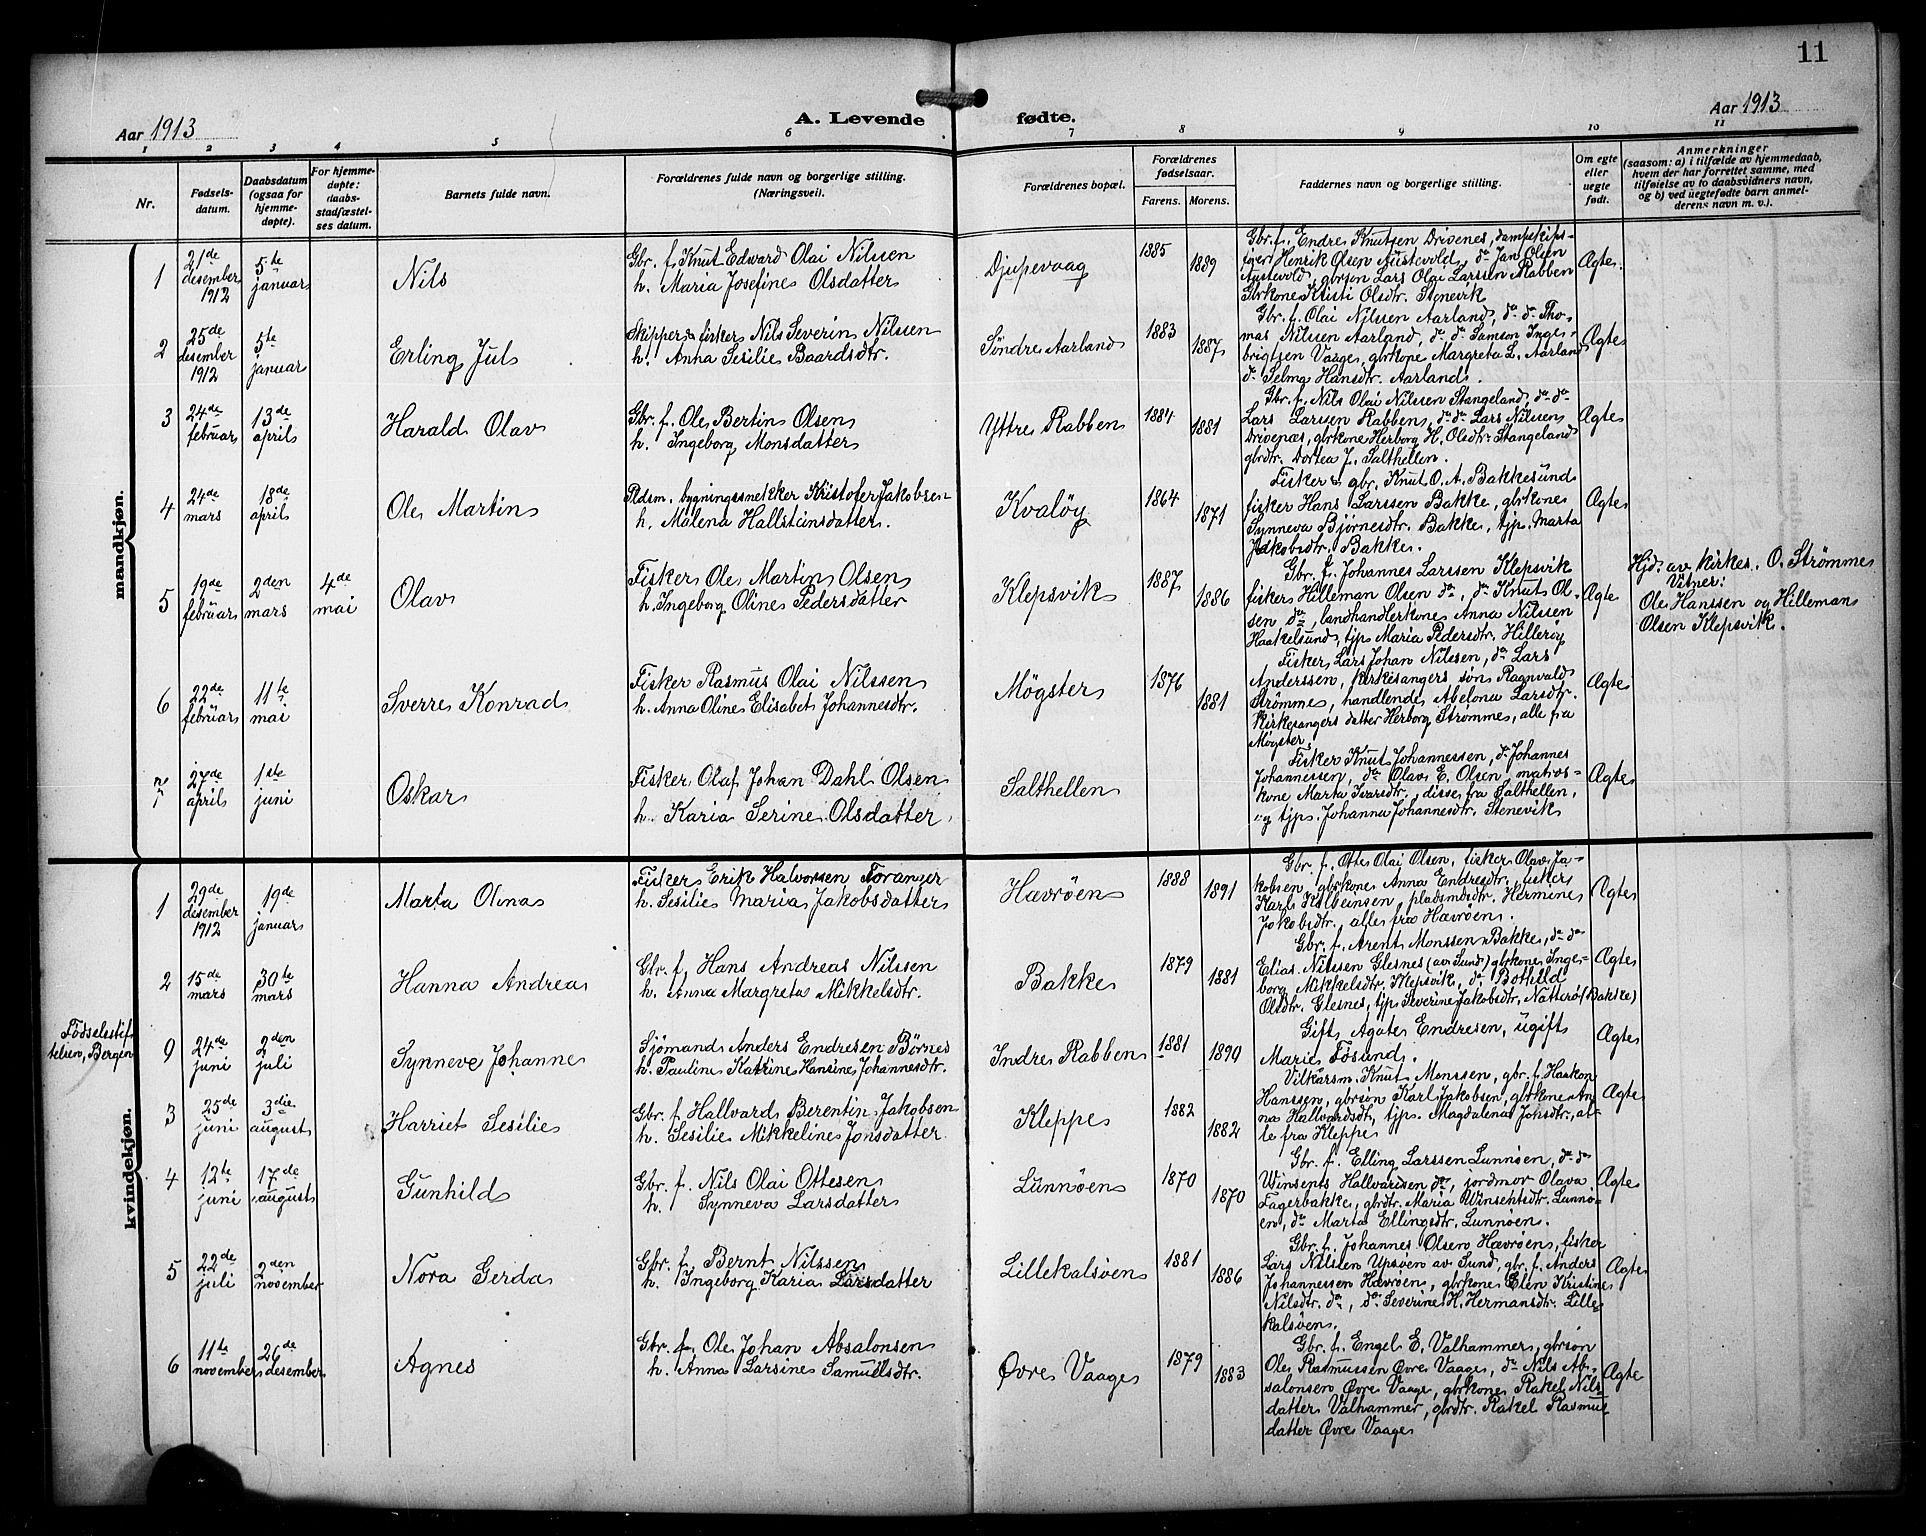 11
Aar 1913
A. Levende fødte.
Aar 1913
1 2 3 4 5 6 7 8 9 10 11
Nr.
Fødsels-
datum.
Daabsdatum
(ogsaa for
hjemme-
døpte).
For hjemme-
døpte:
daabs-
stadfæstel-
ses datum.
Barnets fulde navn.
Forældrenes fulde navn og borgerlige stilling.
(Næringsvei).
Forældrenes bopæl.
Forældrenes
fødselsaar.
Farens. Morens.
Faddernes navn og borgerlige stilling.
Om egte
eller
uegte
født.
Anmerkninger
(saasom: a) i tilfælde av hjemmedaab,
hvem der har forrettet samme, med
tilføielse av to daabsvidners navn,
og b) ved uegtefødte barn anmel-
derens navn m. v.).
mandkjøn.
1
21de
desember
1912
5te
januar
Nils
Gbr. f. Knut Edward Olai Nilssen
h. Maria Josefine Olsdatter
Djupevaag
1885
1889
Gbr. f. Endre Knutsen Drivenes, dampskips-
eier Henrik Olsen Austevold, do Jan Olsen
Austevold, gbrsøn Lars Olai Larssen Rabben
Gbrkone Kristi Olsdtr. Stenevik
Ægte
2
25de
desember
1912
5te
januar
Erling Jul
Skipper & fisker Nils Severin Nilssen
h. Anna Sesilie Baardsdtr.
Søndre Aarland
1883
1887
Gbr. f. Olai Nilssen Aarland, do do Tho-
mas Nilssen Aarland, do do Samson Inge-
brigtsen Vaage, gbrkone Margreta L. Aarland
do Selma Hansdtr. Aarland.
Ægte
3
24de
februar
13de
april
Harald Olav
Gbr. f. Ole Bertin Olsen
h. Ingeborg Monsdatter
Yttre Rabben
1884
1881
Gbr. f. Nils Olai Nilssen Stangeland, do do
Lars Larssen Rabben, do do Lars Nilssen
Drivenæs, gbrkone Herborg H. Olsdtr. Stangeland
gbrdtr. Dortea J. Salthellen.
Ægte
4
24de
mars
18de
april
Ole Martin
Pldsm. bygningssnekker Kristofer Jakobsen
h. Malena Hallsteinsdatter.
Kvaløy
1864
1871
Fisker & gbr. Knut O. A. Bakkesund
fisker Hans Larssen Bakke, gbrkone
Synneva Bjørnesdtr. Bakke, tjp. Marta
Jakobsdtr. Bakke.
Ægte
5
19de
februar
2den
mars
4de
mai
Olav
Fisker Ole Martin Olsen
h. Ingeborg Oline Pedersdatter
Klepsvik
1887
1886
Gbr. f. Johannes Larssen Klepsvik
fisker Hilleman Olsen do, do Knut Ol-
sen do, landhandlerkone Anna Nilssen
Haakelsund, tjp. Maria Pedersdtr. Hillerøy
Ægte
Hjd. av kirkes. O. Strømme
Vitner:
Ole Hanssen og Hilleman
Olsen Klepsvik.
6
22de
februar
11te
mai
Sverre Konrad
Fisker Rasmus Olai Nilssen
h. Anna Oline Elisabet Johannesdtr.
Møgster
1876
1881
Fisker Lars Johan Nilssen, do Lars
Anderssen, kirkesangers søn Ragnvald
Strømme, handlende Abelona Larsdtr.
Kirkesangers datter Herborg Strømme, alle fra
Møgster
Ægte
7
27de
april
1ste
juni
Oskar
Fisker Olaf Johan Dahl Olsen
h. Karia Serine Olsdatter
Salthellen
Fisker Knut Johannessen, do Johannes
Johannessen, do Olav E. Olsen, matros-
kone Marta Ivarsdtr., disse fra Salthellen,
og tjp. Johanna Johannesdtr. Stenevik
Ægte
kvindekjøn.
1
29de
desember
1912
19de
januar
Marta Olina
Fisker Erik Halvorsen Foranger
h. Sesilie Maria Jakobsdatter
Hævrøen
1888
1891
Gbr. f. Otte Olai Olsen, fisker Olav Ja-
kobsen, gbrkone Anna Endresdtr. fisker
Karl pladsmdtr. Hermine
Jakobsdtr., alle fra Hævrøen.
Ægte
2
15de
mars
30te
mars
Hanna Andrea
Gbr. f. Hans Andreas Nilssen
h. Anna Margreta Mikkelsdtr.
Bakke
1879
1881
Gbr. f. Arent Monssen Bakke, do do
Elias Nilssen Glesnes (av Sund) gbrkone Inge-
borg Mikkelsdtr. Klepsvik, do Bothild
Olsdtr. Glesnes, tjp. Severine Jakobsdtr. Natterøy (Bakke)
Ægte
Fødselsstif-
telsen, Bergen
9
24de
juni
2den
juli
Synneve Johanne
Sjømand Anders Endresen Børnes
h. Pauline Katrine Hansine Johannesdtr.
Indre Rabben
1881
1890
Gift Agate Endresen, ugift
Marie Føsund.
Ægte
3
25de
juni
3die
august
Harriet Sesilie
Gbr. f. Hallvard Berentin Jakobsen
h. Sesilie Mikkeline Jonsdatter
Kleppe
1882
1882
Vilkårsm. Knut Monssen, gbr. f. Haakon
Hanssen, gbrsøn Karl Jakobsen, gbrkone An-
na Hallvardsdtr, tjp. Magdalena Jonsdtr, al-
le fra Kleppe
Ægte
4
12te
juni
17de
august
Gunhild
Gbr. f. Nils Olai Ottesen
h. Synneva Larsdatter
Lunnøen
1870
1870
Gbr. f. Elling Larssen Lunnøen, do do
Winsents Hallvardsen do, jordmor Olava
Fagerbakke, gbrdtr. Maria Winsentsdtr. Lunnø-
en, do Marta Ellingsdtr. Lunnøen.
Ægte
5
22de
juli
2den
november
Nora Gerda
Gbr. f. Bernt Nilssen
h. Ingeborg Karia Larsdatter
Lillekalsøen
1881
1886
Gbr. f. Johannes Olsen Hævrøen, fisker
Lars Nilssen Upsøen av Sund, gbr. f. Anders
Johannessen Hævrøen, gbrkone Elen Kristine
Nilsdtr. do, do Severine H. Hermansdtr. Lille-
kalsøen.
Ægte
6
11te
november
26de
desember
Agnes
Gbr. f. Ole Johan Absalonsen
h. Anna Larsine Samuelsdtr.
Øvre Vaage
1879
1883
Gbr. f. Engel E. Valhammer, gbrsøn
Ole Rasmussen Øvre Vaage, do Nils Ab-
salonsen Øvre Vaage, gbrkone Rakel Nils-
datter Valhammer, gbrdtr. Rakel Rasmus-
datter Øvre Vaage
Ægte